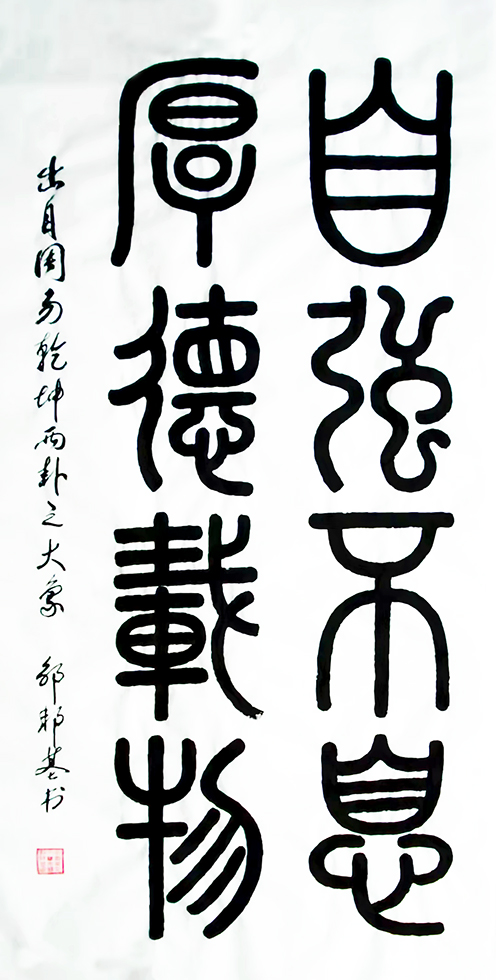 自强不息
厚德載物
出自周易乾坤两卦之大象
邹邦基书